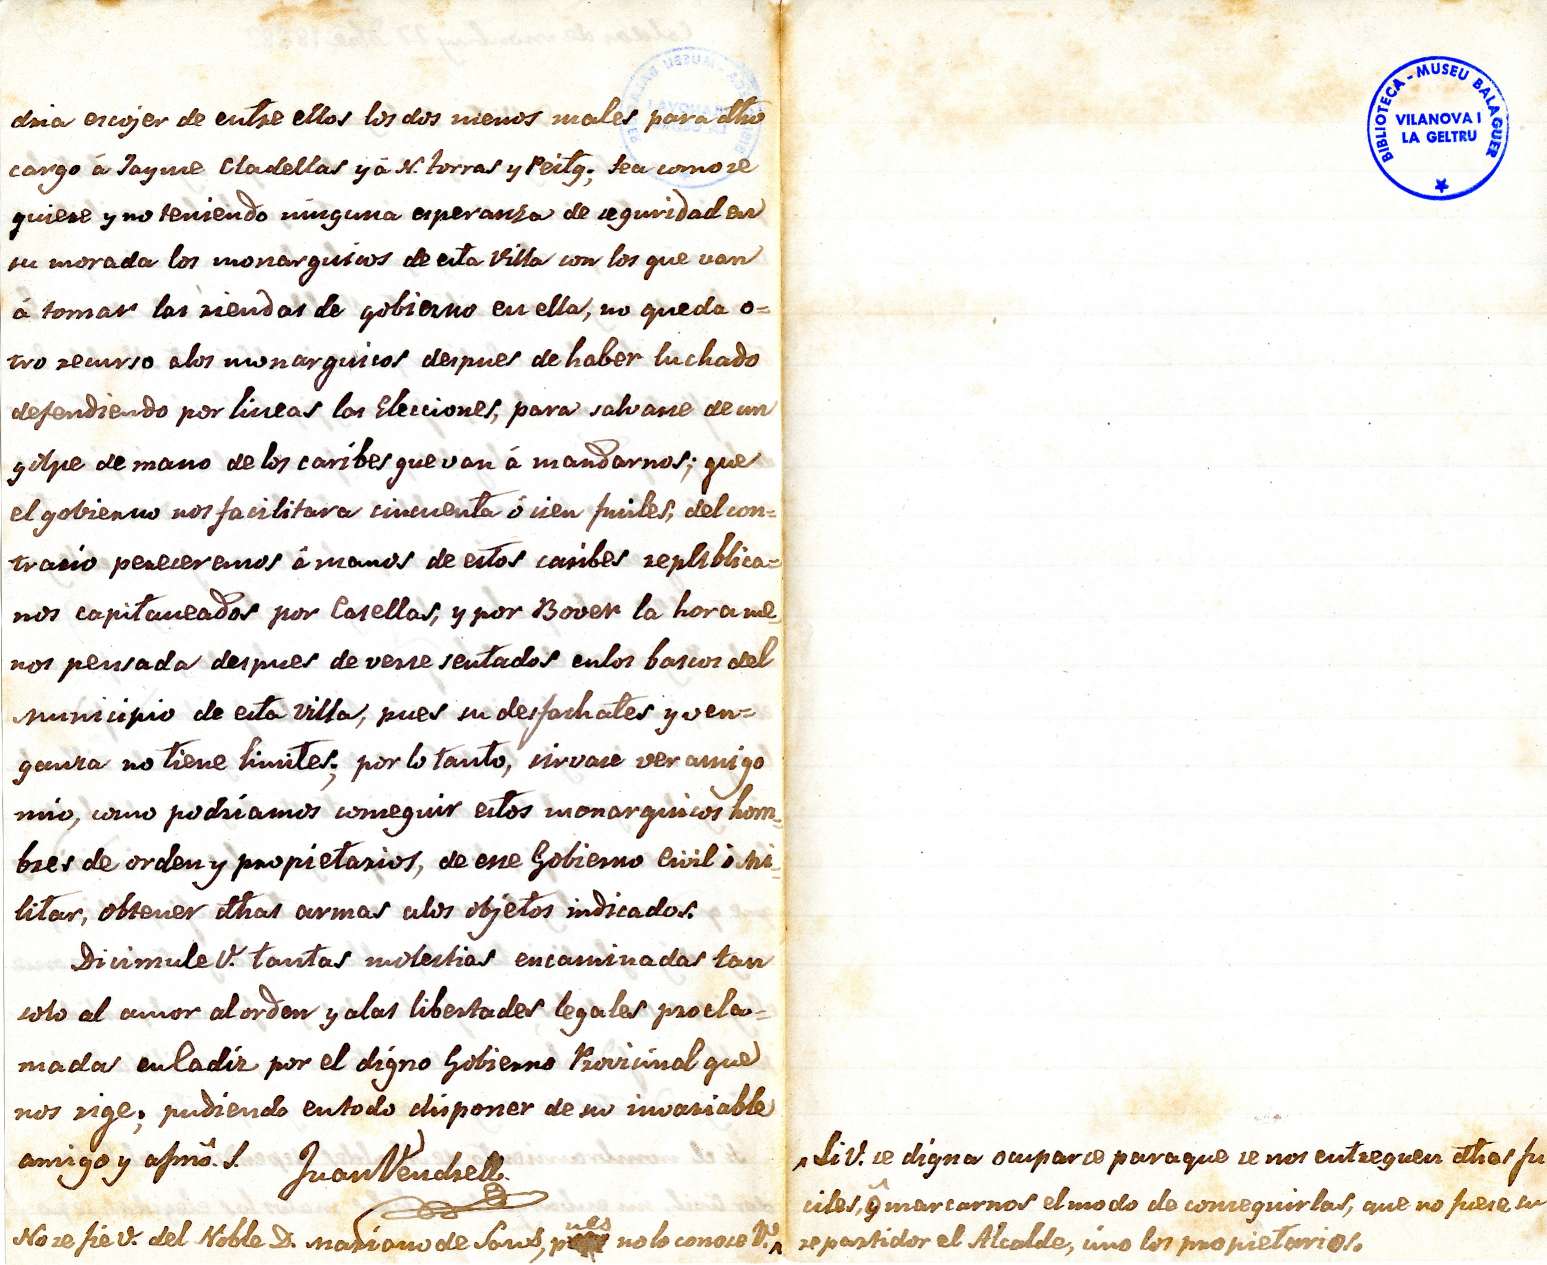 dria escojer de entre ellos los dos menos males para dho
cargo á Jayme Cladellas y á N. Torras y Peitg; sea como se
quiere y no teniendo ninguna esperanza de seguridad en
su morada los monarquicos de esta Villa con los que van
á tomar las riendas de gobierno en ella, no queda o=
tro recurso alos monarquicos despues de haber luchado
defendiendo por lineas las Elecciones, para salvarse de un
golpe de mano de los caribes que van á mandarnos; que
el gobierno nos facilitara cincuenta ó cien fusiles, del con=
trario pereceremos á manos de estos caribes republica=
nos capitaneados por Casellas, y por Bover la hora me
nos pensada despues de verse sentados en los bascos del
Municipio de esta Villa, pues su desfachates y ven=
ganza no tiene limites; por lo tanto, sirvase ver amigo
mio, como podriamos conseguir estos monarquicos hom=
bres de orden y propietarios, de ese Gobierno Civil ó Mi=
litar, obtener dhas armas alos objetos indicados.
Dicimule V. tantas molestias encaminadas tan
solo al amor al orden y alas libertades legales procla=
madas en Cadiz por el digno Gobierno Provicinal que
nos rige; pudiendo en todo disponer de su invariable
amigo y afmo. S. Juan Vendrell.
No se fie V. del Noble D. Mariano de Sans, pues no lo conoce V.
Si V. se digna ocuparse para que se nos entreguen dhos fu
ciles, ó marcarnos el modo de conseguirlas, que no fuese su
repartidor el Alcalde, sino los propietarios.
BIBLIOTECA - MUSEU BALAGUER
VILANOVA I
LA GELTRU